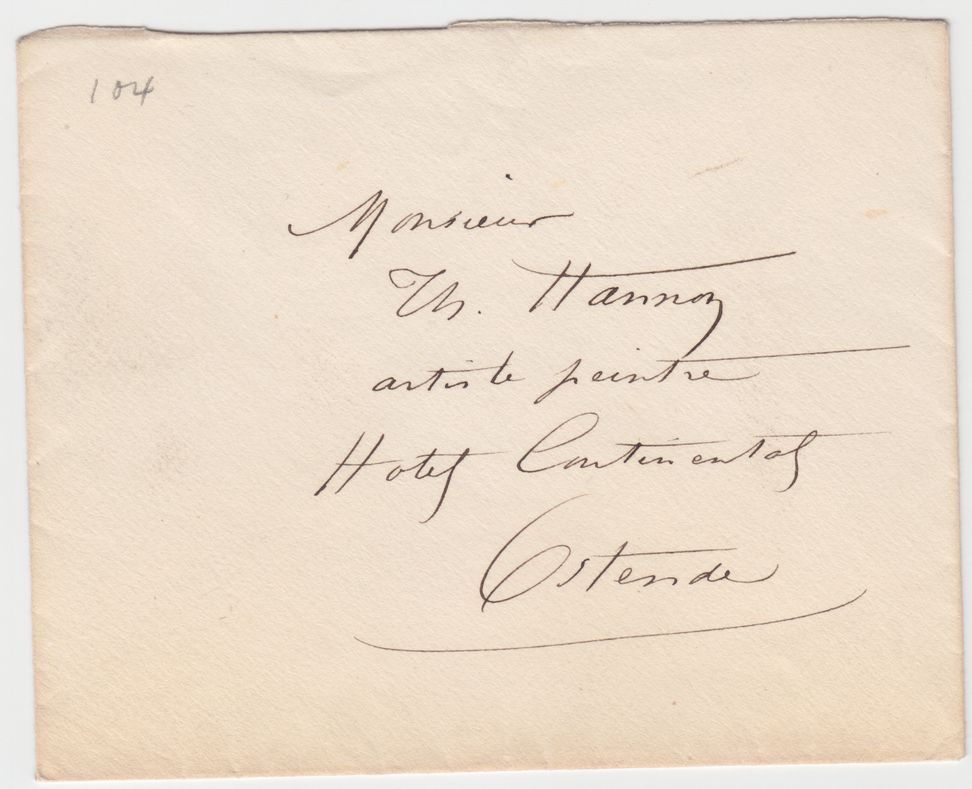 104
Monsieur
Th. Hannon
artiste peintre
Hotel Continental
Ostende